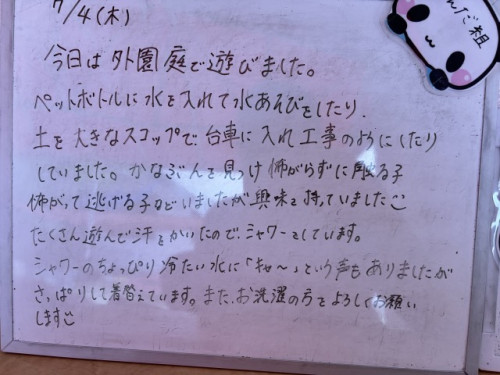 7/4(木)
んだ組
今日は外園庭で遊びました。
ペットボトルに水を入れて水あそびをしたり、
土を大きなスコップで台車に入れ工事のようにしたり
していました。かなぶんを見つけ怖がらずに触る子
怖がって逃げる子などいましたが興味を持っていました
たくさん遊んで汗をかいたので、シャワーをしています。
シャワーのちょっぴり冷たい水に「キャ〜」という声もありましたが
さっぱりして着替えています。また、お洗濯の方をよろしくお願い
します